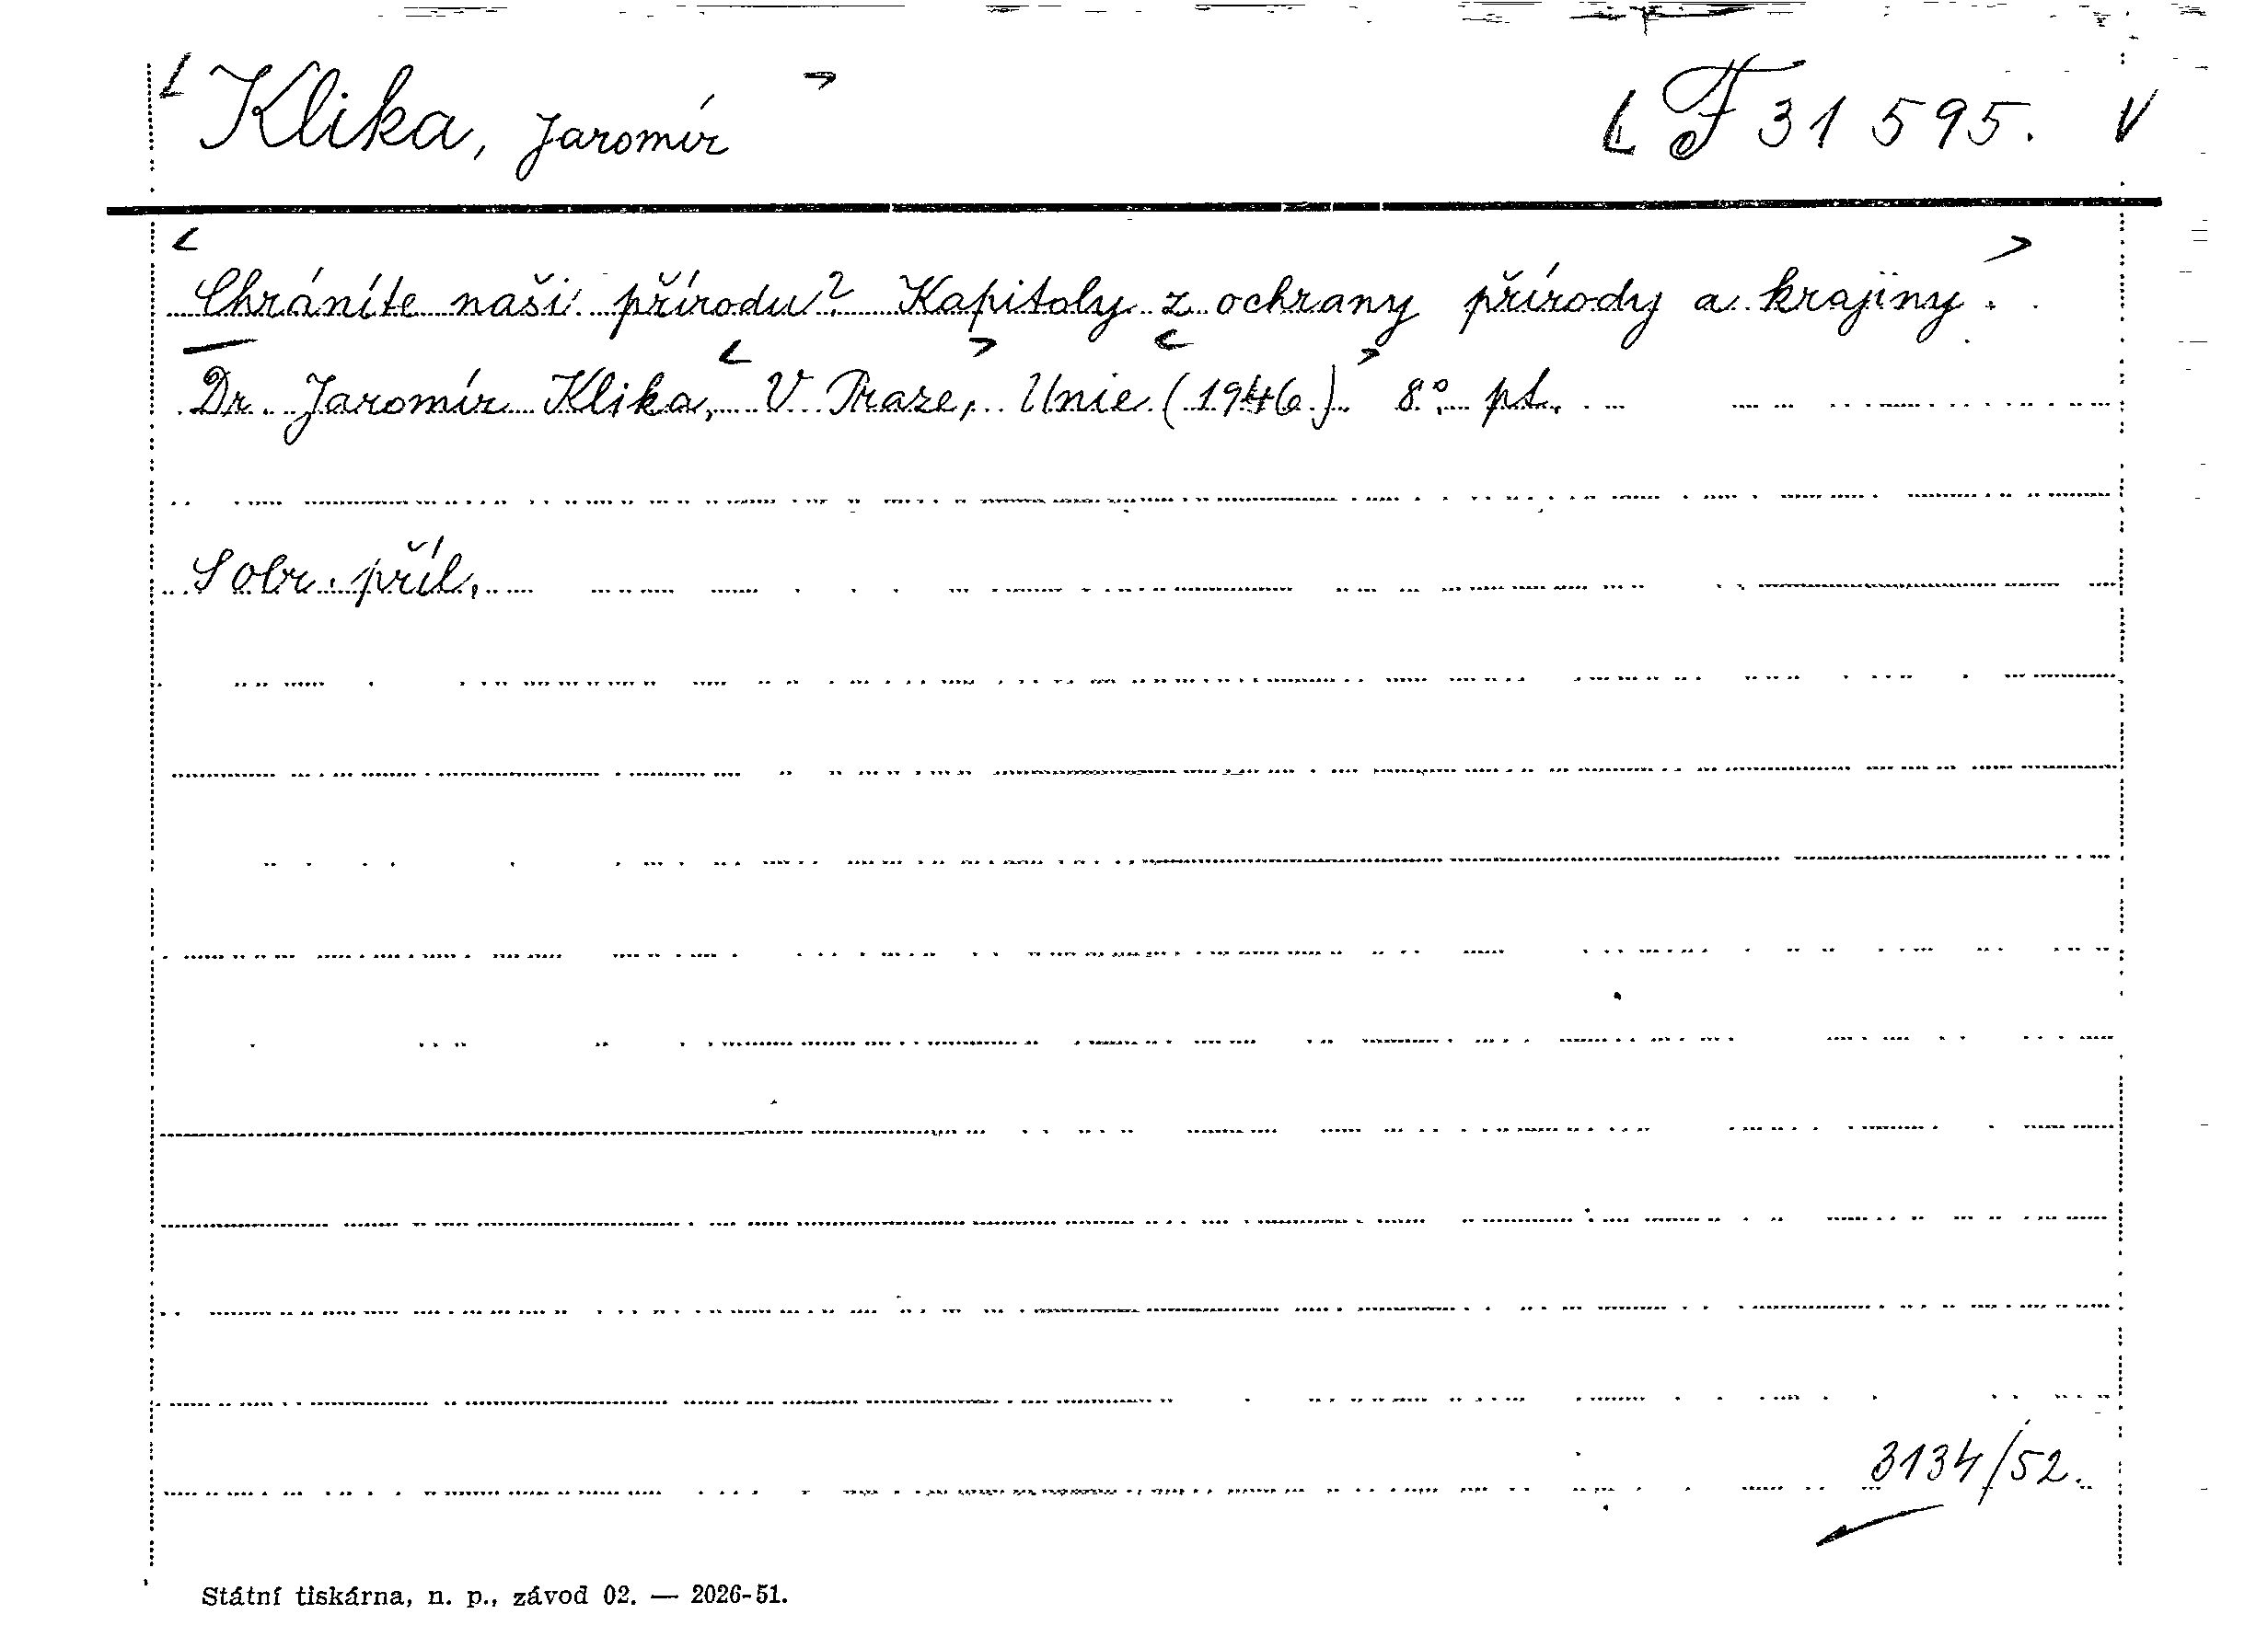 Klika, Jaromír
F 31 595.
Chráníte naši přírodu? Kapitoly z ochrany přírody a krajiny.
Dr. Jaromír Klika, V Praze, Unie (1946). 8° pt.
S obr. příl.
3134/52.
Státní tiskárna, n. p., závod 02. — 2026-51.